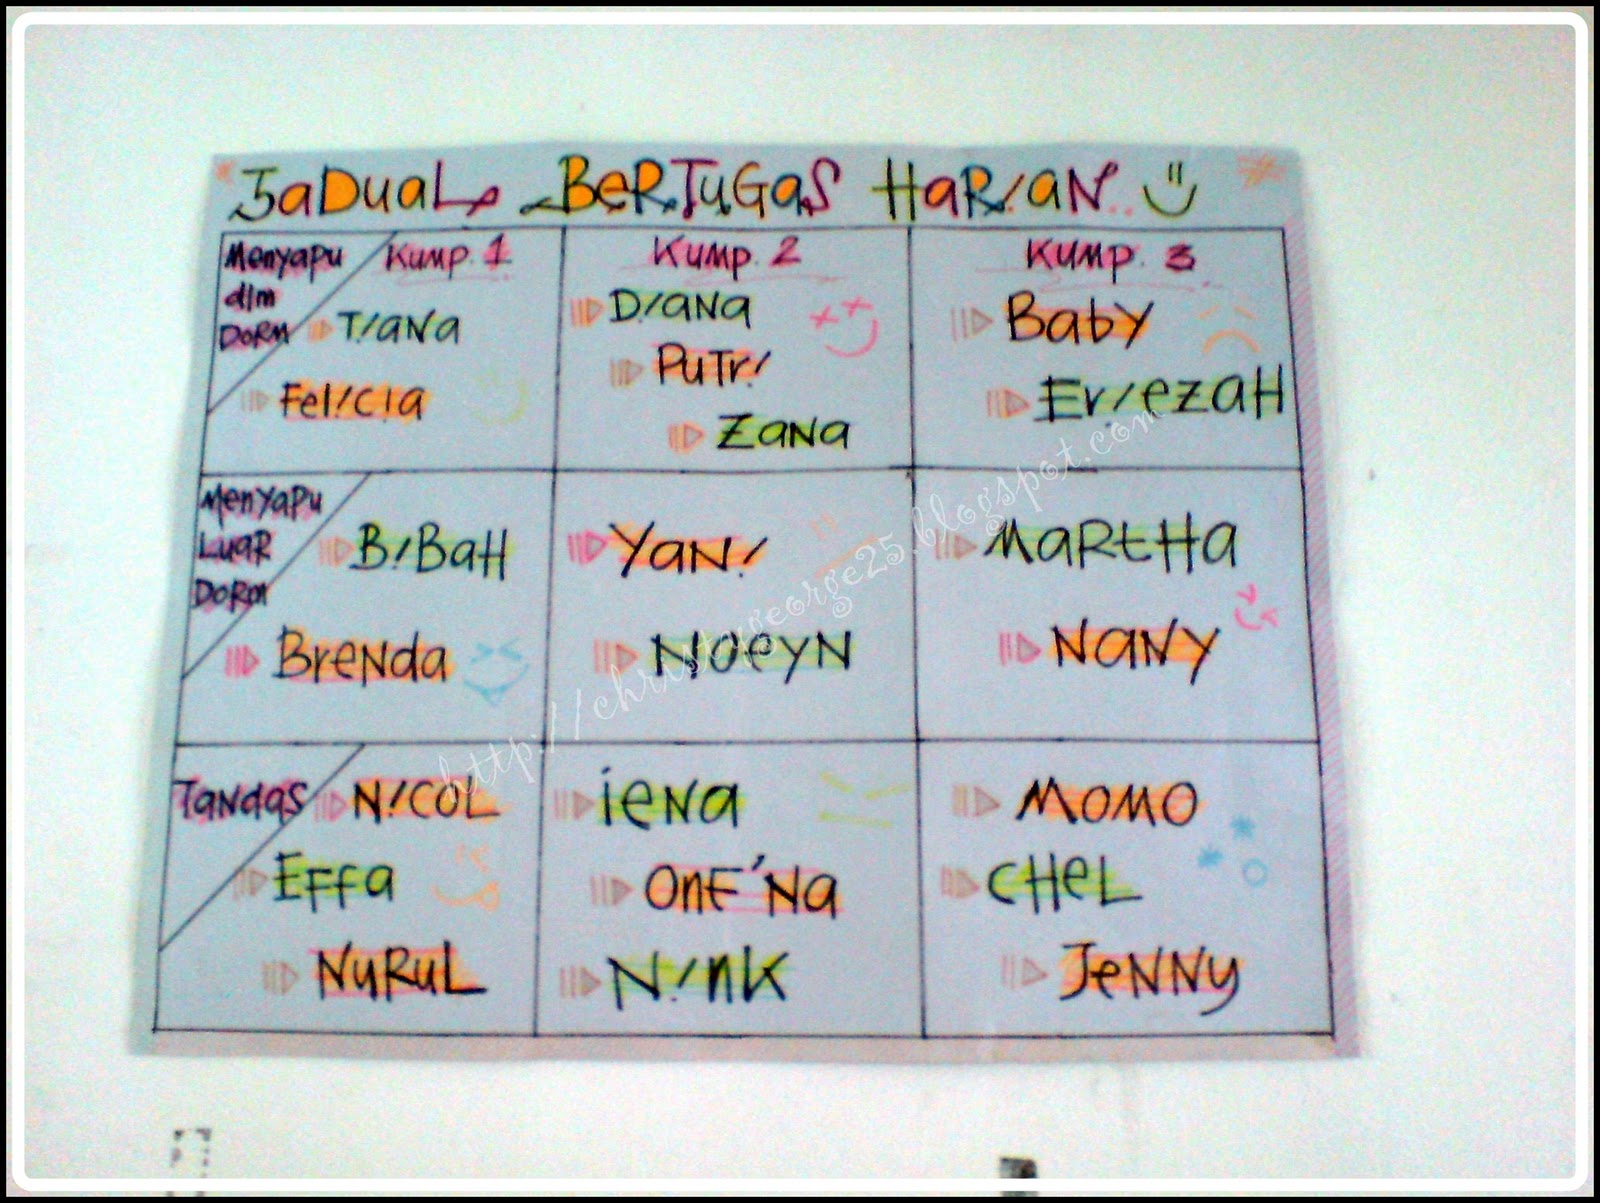 JaDuaL BeRTuGaS HaRiaN..
Menyapu dlm DoRM
Kump. 1
TiaNa
Felicia
Kump. 2
DiaNa
PuTri
ZaNa
Kump. 3
BabY
EriezaH
MenyaPu LuaR DoRm
BiBaH
BreNda
YaNi
NoeyN
MaRtHa
NaNy
TaNdaS
NiCOL
EFFa
NuRuL
ieNa
OnE'Na
NinK
MOMO
CHeL
JeNNy
http://christygeorge25.blogspot.com